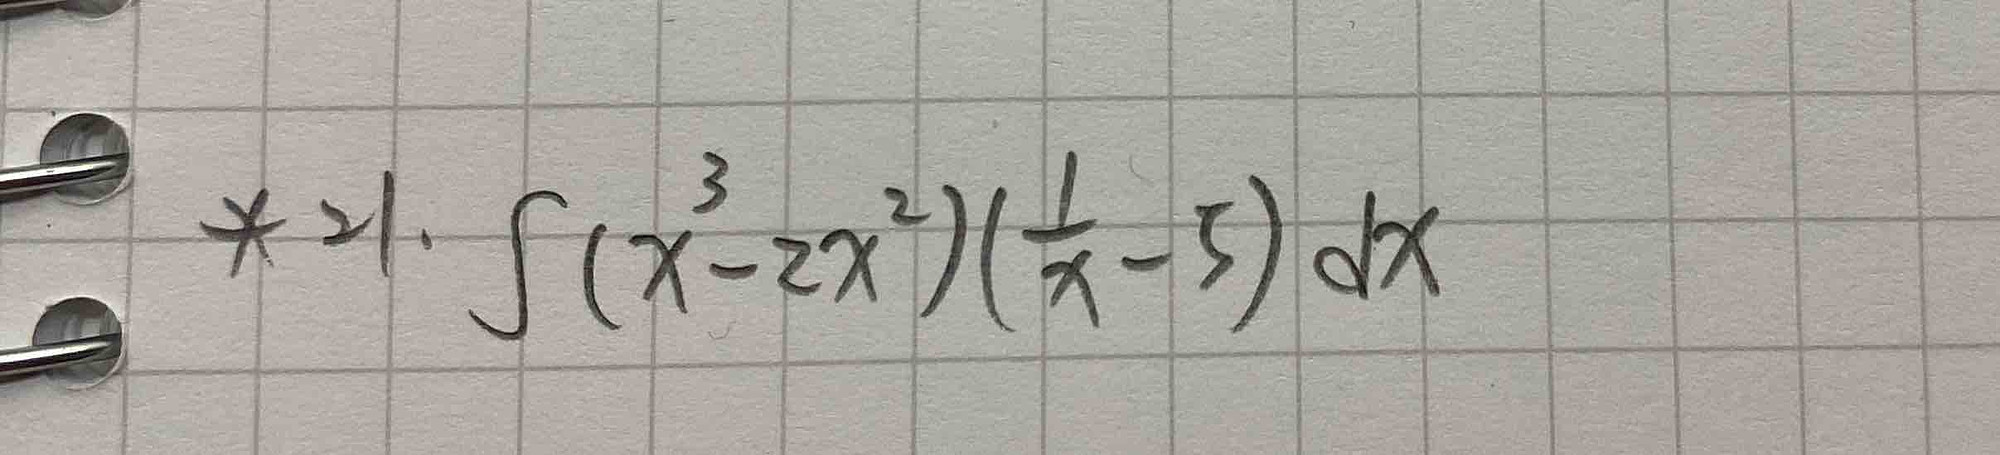 * 21. ∫(x³-2x²)(1/x-5) dx